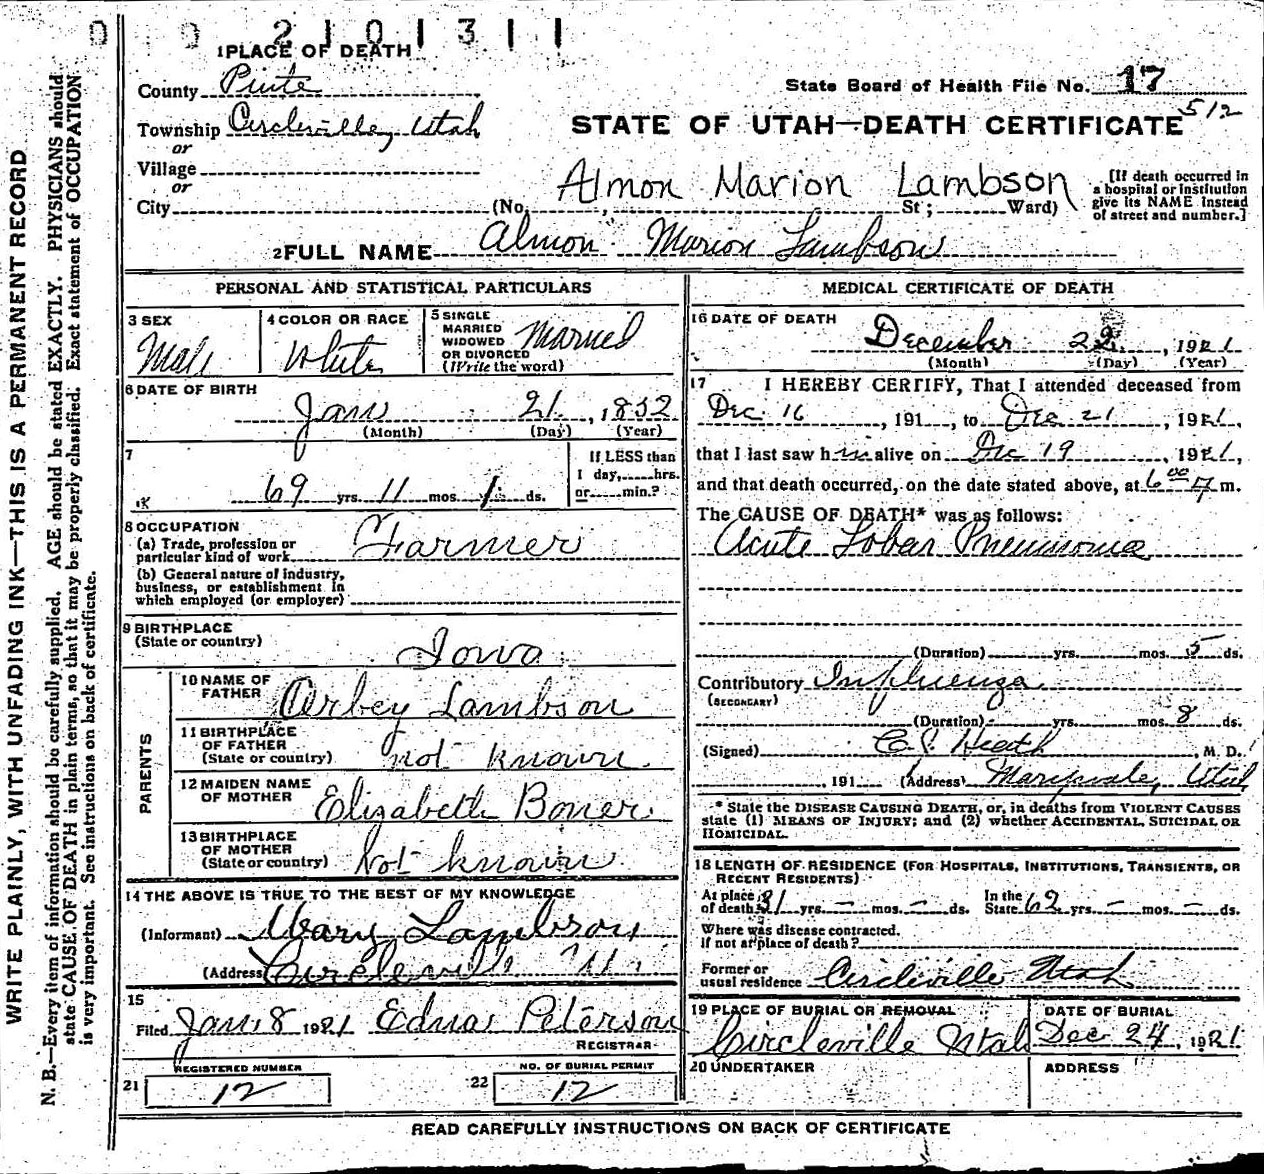 0 0 2 1 0 1 3 1 1
1 PLACE OF DEATH
County Piute
State Board of Health File No. 17
512
Township Circleville, Utah
STATE OF UTAH—DEATH CERTIFICATE
or
Village
or
Almon Marion Lambson
City (No. , St; Ward)
[If death occurred in
a hospital or institution
give its NAME instead
of street and number.]
2 FULL NAME Almon Marion Lambson
PERSONAL AND STATISTICAL PARTICULARS
3 SEX
Male
4 COLOR OR RACE
White
5 SINGLE
MARRIED
WIDOWED
OR DIVORCED
(Write the word)
Married
6 DATE OF BIRTH
Jan 21 , 1852
(Month) (Day) (Year)
7
69 yrs. 11 mos. 1 ds.
If LESS than
1 day, hrs.
or min.?
8 OCCUPATION
(a) Trade, profession or
particular kind of work
Farmer
(b) General nature of industry,
business, or establishment in
which employed (or employer)
9 BIRTHPLACE
(State or country)
Iowa
PARENTS
10 NAME OF
FATHER
Arbey Lambson
11 BIRTHPLACE
OF FATHER
(State or country)
not known.
12 MAIDEN NAME
OF MOTHER
Elizabeth Boner
13 BIRTHPLACE
OF MOTHER
(State or country)
Not known.
14 THE ABOVE IS TRUE TO THE BEST OF MY KNOWLEDGE
(Informant) Mary Lambson
(Address) Circleville U.
15
Filed Jan. 8 1921 Edna Peterson
REGISTRAR
21 REGISTERED NUMBER
12
22 NO. OF BURIAL PERMIT
12
MEDICAL CERTIFICATE OF DEATH
16 DATE OF DEATH
December 22 , 1921
(Month) (Day) (Year)
17 I HEREBY CERTIFY, That I attended deceased from
Dec 16 , 191 , to Dec 21 , 1921,
that I last saw him alive on Dec 19 , 1921,
and that death occurred, on the date stated above, at 6 00 m.
The CAUSE OF DEATH* was as follows:
Acute Lobar Pneumonia
(Duration) yrs. mos. 5 ds.
Contributory Influenza
(SECONDARY)
(Duration) yrs. mos. 8 ds.
(Signed) Heath , M. D.
, 191 (Address) Marysvale, Utah
* State the DISEASE CAUSING DEATH, or, in deaths from VIOLENT CAUSES
state (1) MEANS OF INJURY; and (2) whether ACCIDENTAL, SUICIDAL OR
HOMICIDAL.
18 LENGTH OF RESIDENCE (FOR HOSPITALS, INSTITUTIONS, TRANSIENTS, OR
RECENT RESIDENTS)
At place
of death 31 yrs. – mos. – ds.
In the
State 62 yrs. – mos. – ds.
Where was disease contracted.
If not at place of death?
Former or
usual residence Circleville Utah
19 PLACE OF BURIAL OR REMOVAL
Circleville Utah
DATE OF BURIAL
Dec 24 , 1921
20 UNDERTAKER
ADDRESS
READ CAREFULLY INSTRUCTIONS ON BACK OF CERTIFICATE
WRITE PLAINLY, WITH UNFADING INK—THIS IS A PERMANENT RECORD
N. B.—Every item of information should be carefully supplied. AGE should be stated EXACTLY. PHYSICIANS should
state CAUSE OF DEATH in plain terms, so that it may be properly classified. Exact statement of OCCUPATION
is very important. See instructions on back of certificate.